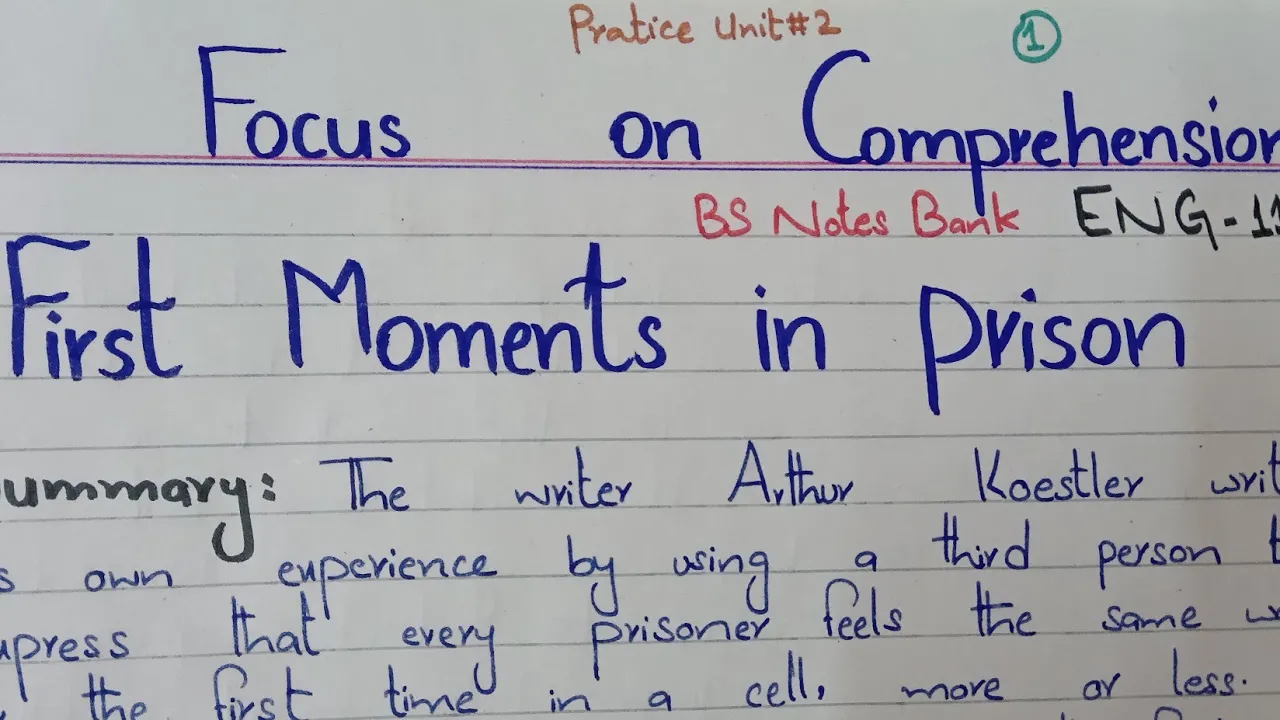 Pratice Unit#2
1
Focus on Comprehension
BS Notes Bank ENG-11
First Moments in prison
Summary: The writer Arthur Koestler writ
s own experience by using a third person t
xpress that every prisoner feels the same w
the first time in a cell, more or less.